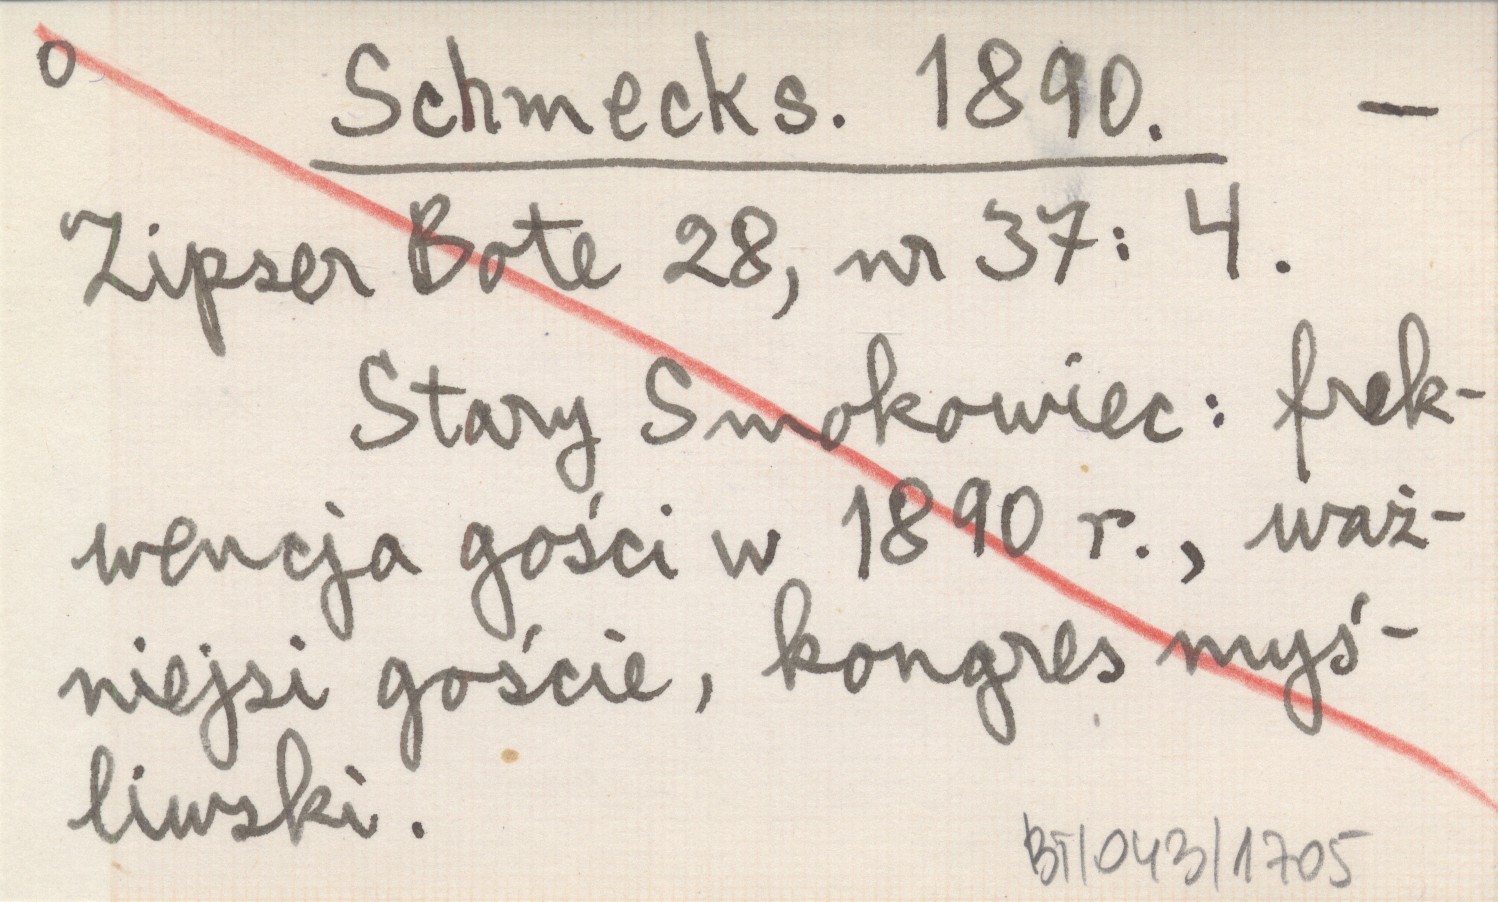 o Schmecks. 1890. —
Zipser Bote 28, nr 37: 4.
Stary Smokowiec: frek-
wencja gości w 1890 r., waż-
niejsi goście, kongres myś-
liwski.
BT/043/1705